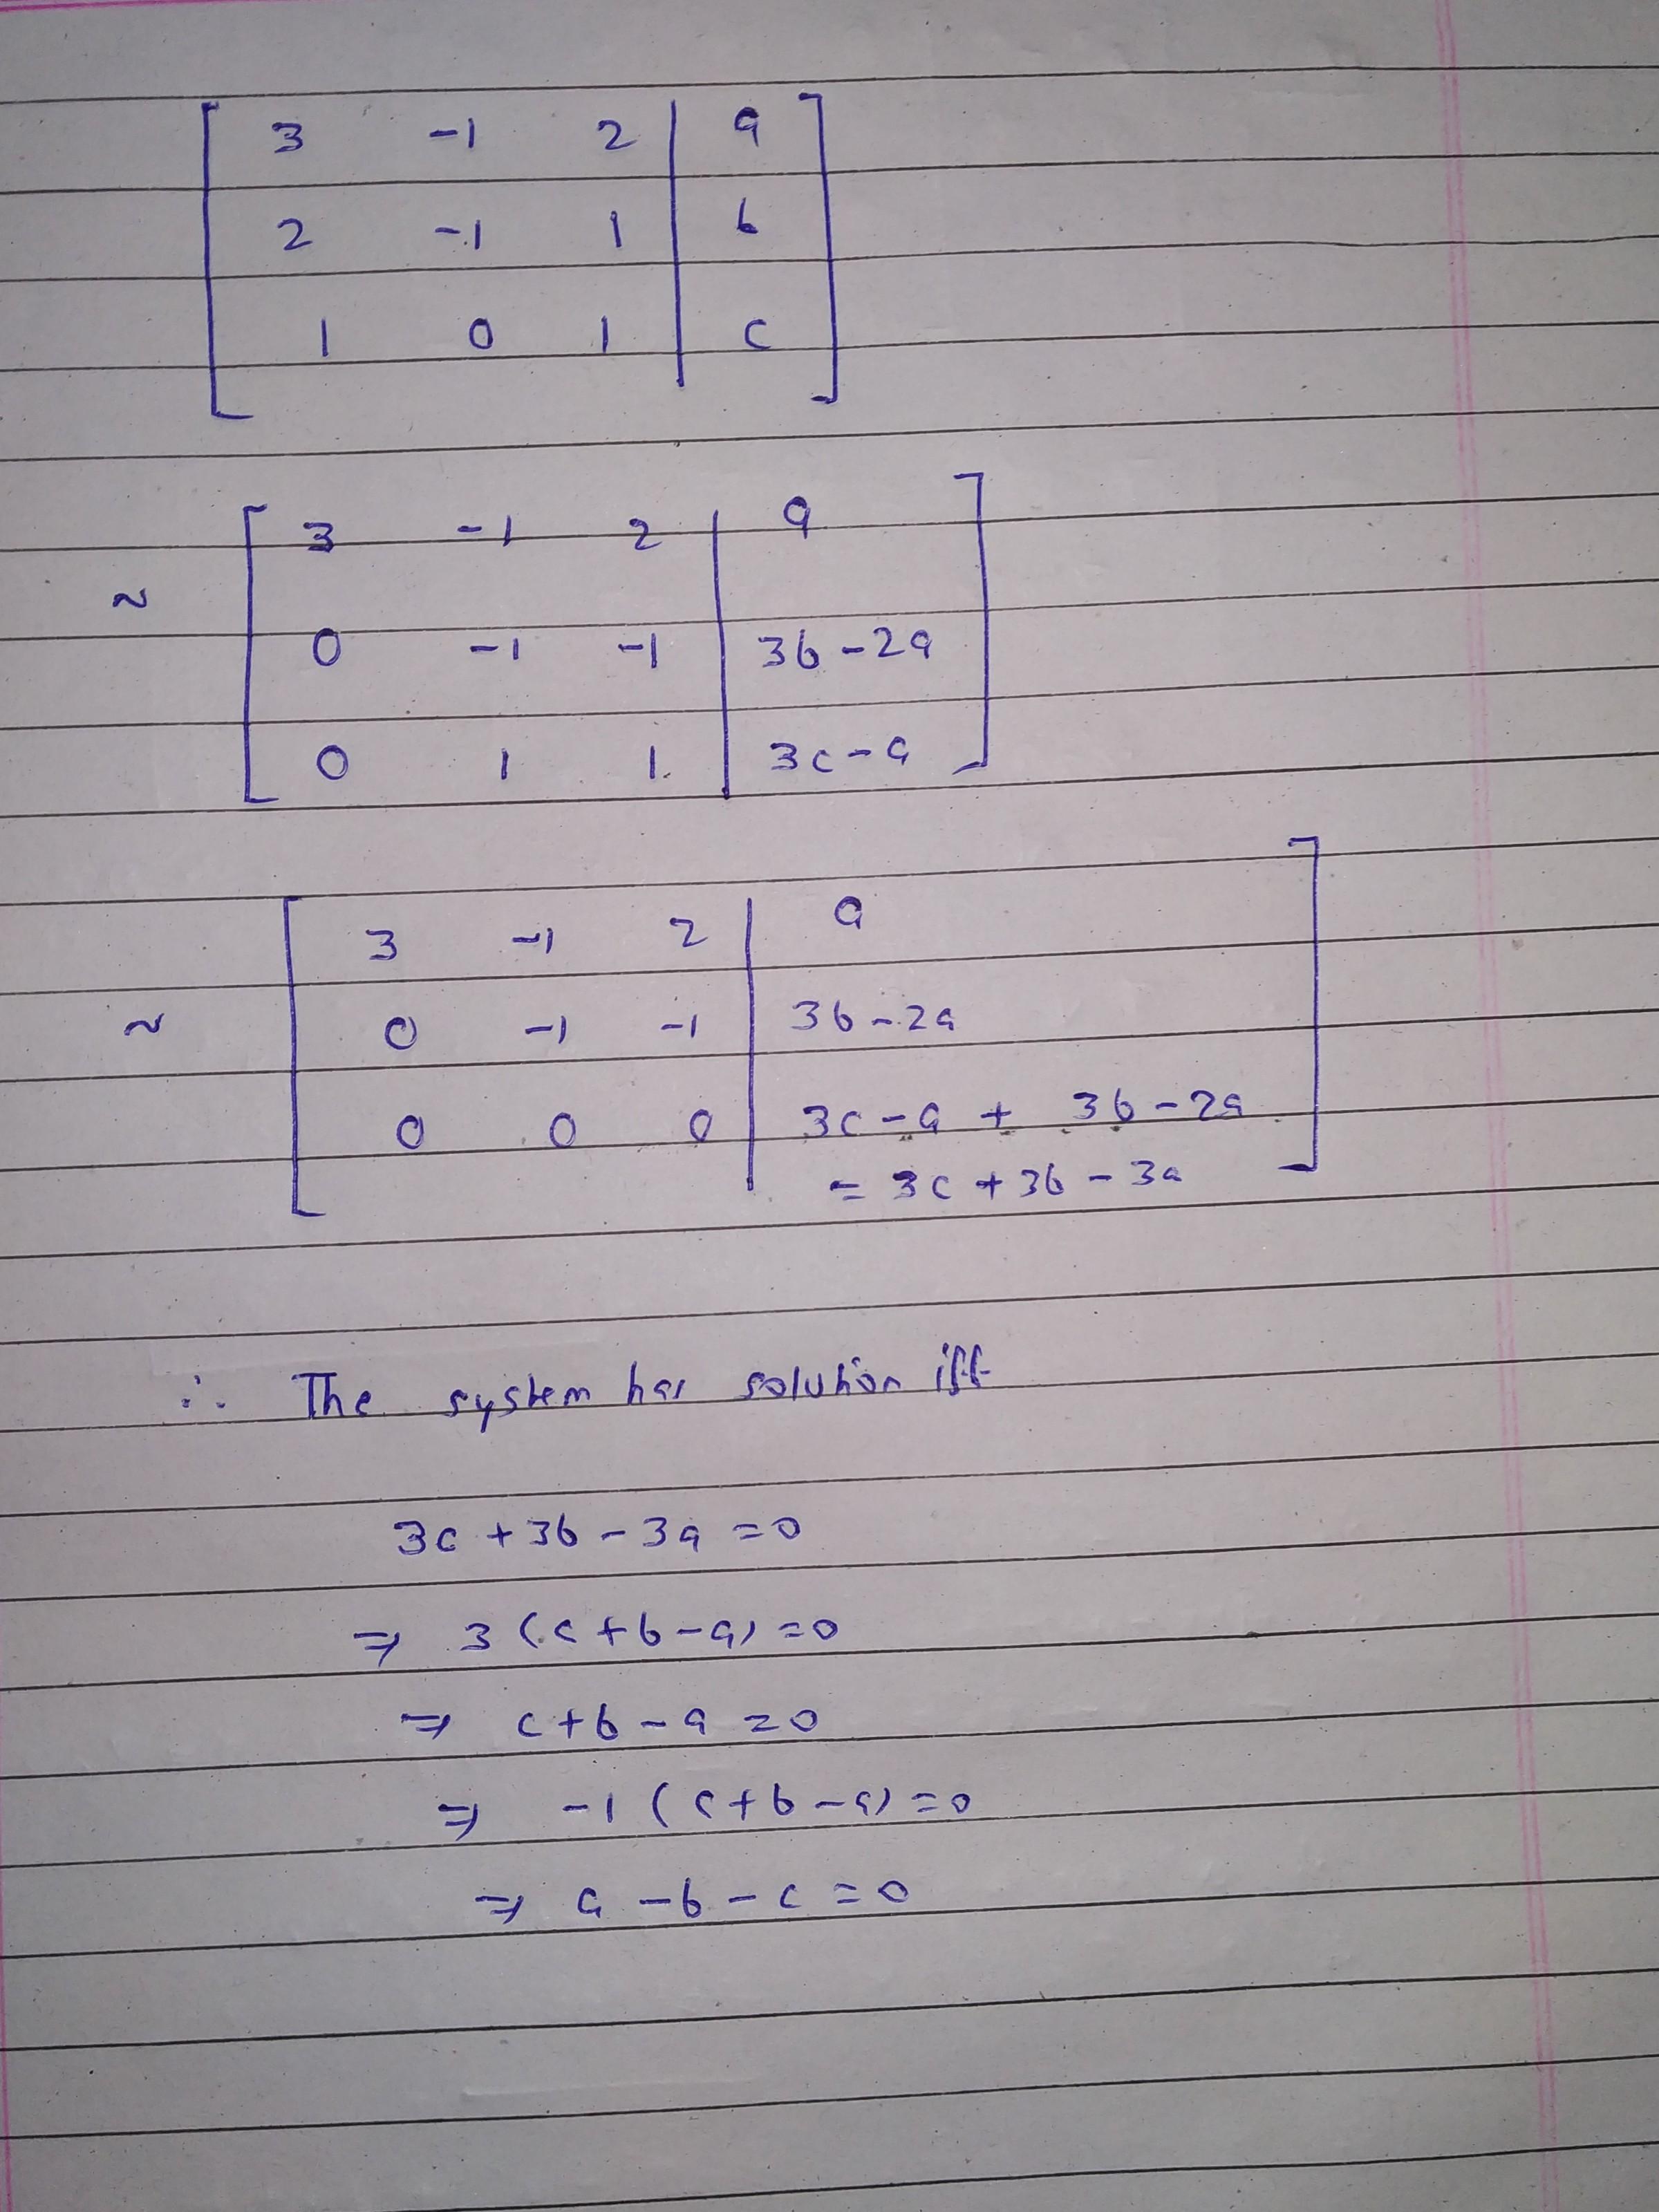 3 -1 2 | a
2 -1 1 | b
1 0 1 | c
~ 3 -1 2 | a
0 -1 -1 | 3b-2a
0 1 1 | 3c-a
~ 3 -1 2 | a
0 -1 -1 | 3b-2a
0 0 0 | 3c-a + 3b-2a
= 3c+3b-3a
∴ The system has solution iff
3c+3b-3a=0
⇒ 3(c+b-a)=0
⇒ c+b-a=0
⇒ -1(c+b-a)=0
⇒ a-b-c=0